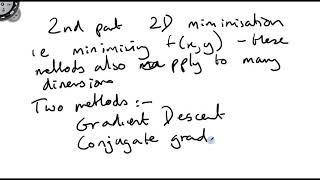 2nd part 2D minimisation
i.e minimising f(x,y) - these
methods also apply to many
dimensions
Two methods :-
Gradient Descent
Conjugate grad